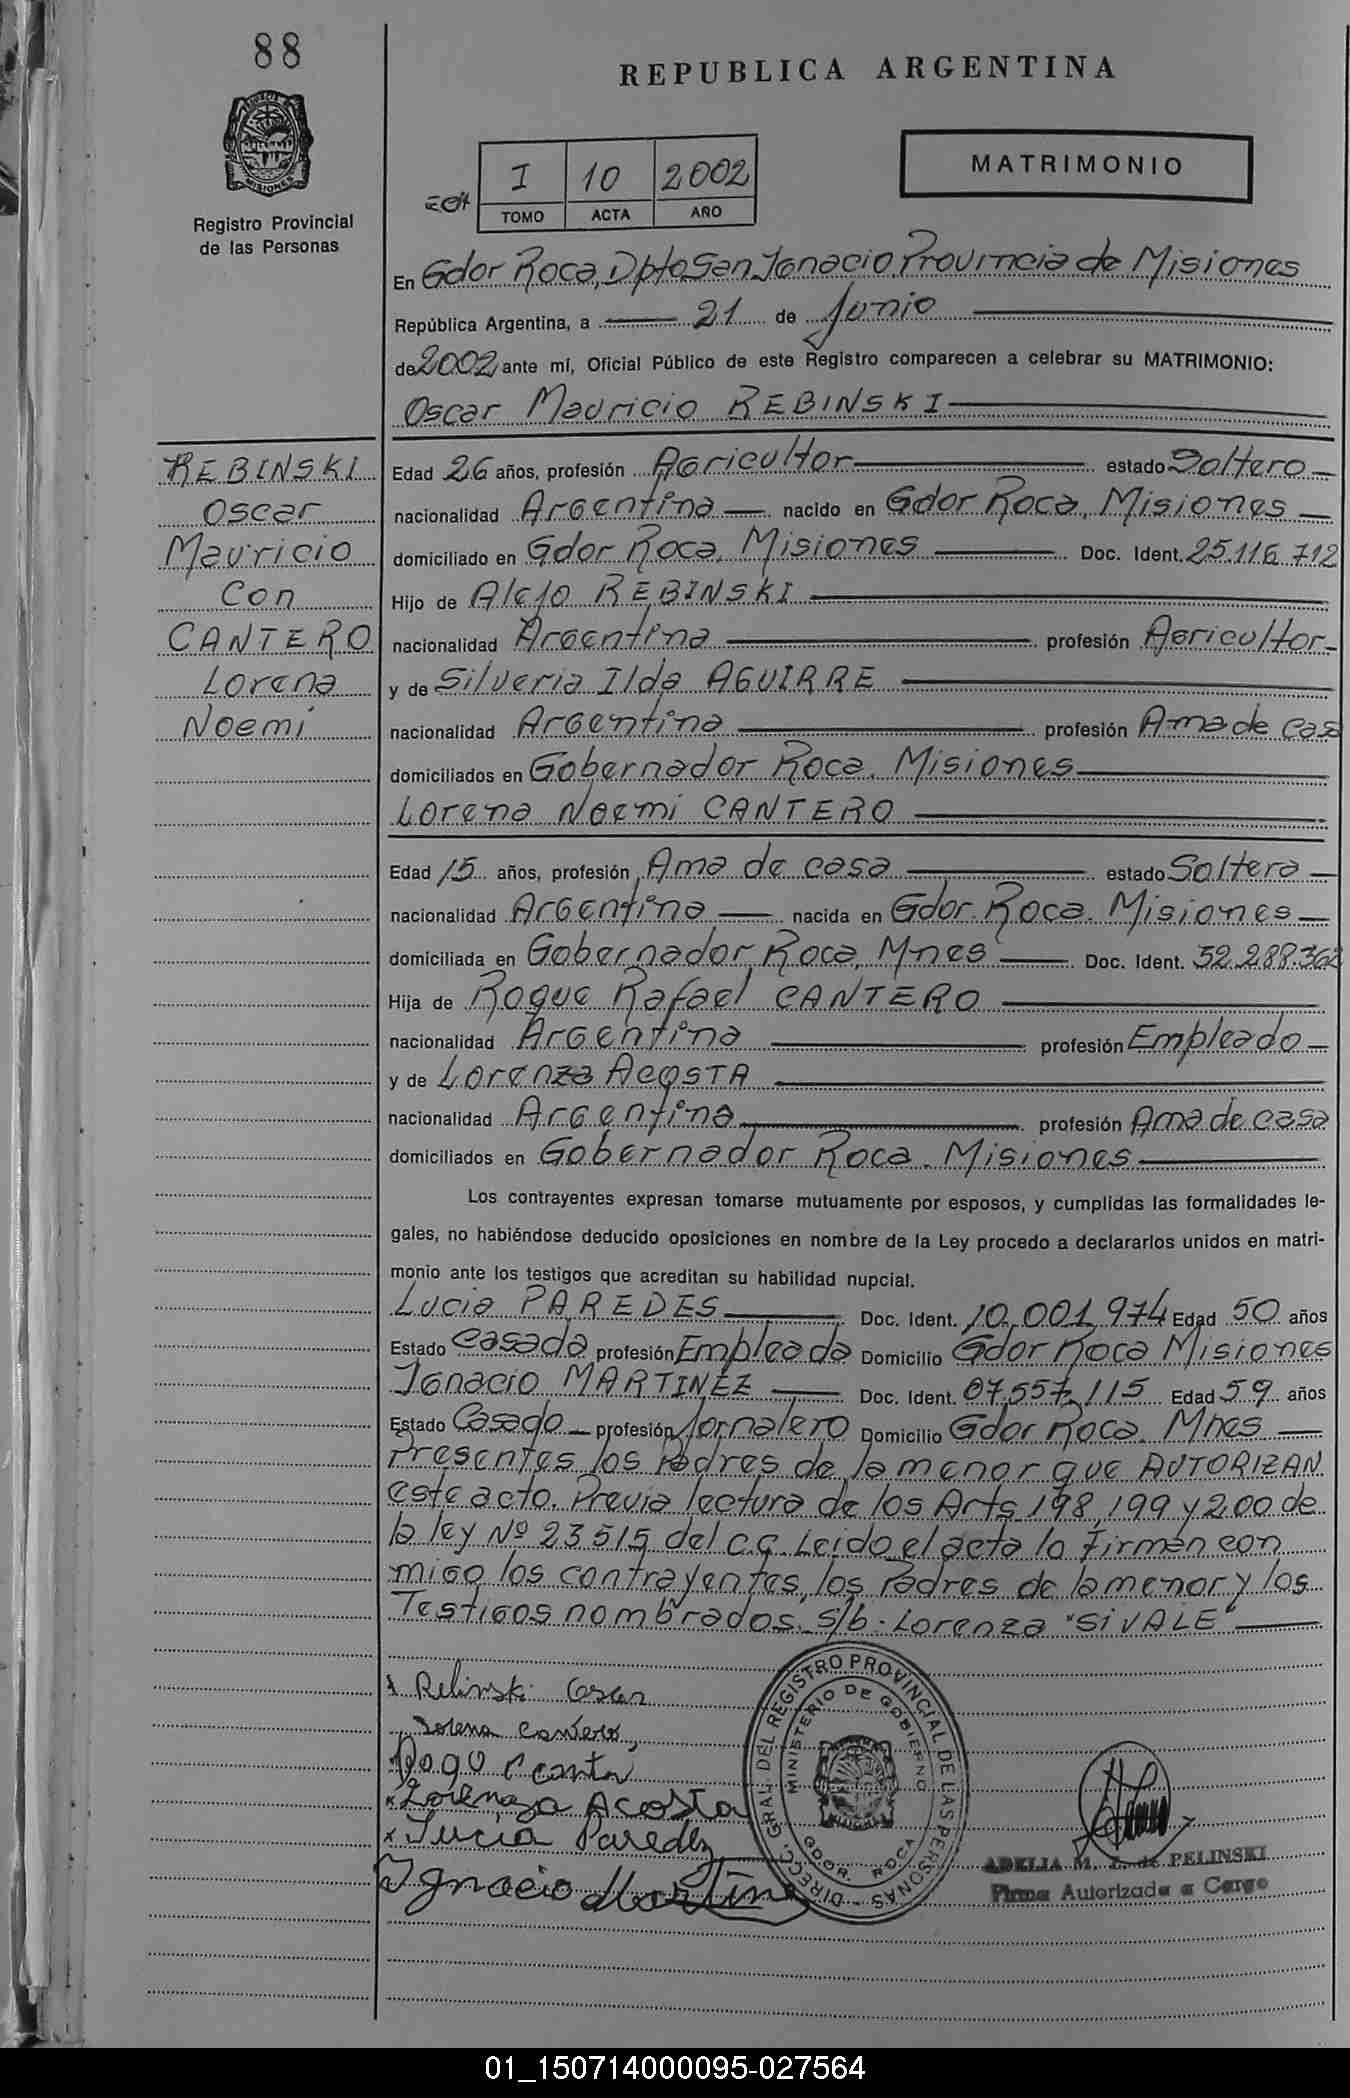 88
REPUBLICA ARGENTINA
MISIONES
Registro Provincial
de las Personas
MATRIMONIO
I 10 2002
TOMO ACTA AÑO
En Gdor Roca, Dpto San Ignacio Provincia de Misiones
República Argentina, a 21 de Junio
de 2002 ante mí, Oficial Público de este Registro comparecen a celebrar su MATRIMONIO:
Oscar Mauricio REBINSKI
REBINSKI
Oscar
Mauricio
Con
CANTERO
Lorena
Noemi
Edad 26 años, profesión Agricultor estado Soltero
nacionalidad Argentina nacido en Gdor Roca, Misiones
domiciliado en Gdor Roca, Misiones Doc. Ident. 25.116.712
Hijo de Alejo REBINSKI
nacionalidad Argentina profesión Agricultor
y de Silveria Ilda AGUIRRE
nacionalidad Argentina profesión Ama de casa
domiciliados en Gobernador Roca. Misiones
Lorena Noemi CANTERO
Edad 15 años, profesión Ama de casa estado Soltera
nacionalidad Argentina nacida en Gdor. Roca. Misiones
domiciliada en Gobernador Roca, Mnes Doc. Ident. 52.288.362
Hija de Roque Rafael CANTERO
nacionalidad Argentina profesión Empleado
y de Lorenza ACOSTA
nacionalidad Argentina profesión Ama de casa
domiciliados en Gobernador Roca. Misiones
Los contrayentes expresan tomarse mutuamente por esposos, y cumplidas las formalidades le-
gales, no habiéndose deducido oposiciones en nombre de la Ley procedo a declararlos unidos en matri-
monio ante los testigos que acreditan su habilidad nupcial.
Lucia PAREDES Doc. Ident. 10.001.974 Edad 50 años
Estado Casada profesión Empleada Domicilio Gdor Roca Misiones
Ignacio MARTINEZ Doc. Ident. 07.557.115 Edad 59 años
Estado Casado profesión Jornalero Domicilio Gdor Roca. Mnes
Presentes los Padres de la menor que AUTORIZAN
este acto. Previa lectura de los Arts 198, 199 y 200 de
la ley Nº 23515 del C.C. Leido el acta la firman con
migo los contrayentes, los Padres de la menor y los
Testigos nombrados. S/b. Lorenza "SI VALE"
Rebinski Oscar
Lorena Cantero
Lorenza Acosta
Lucia Paredez
Ignacio Martine
DIRECC. GRAL. DEL REGISTRO PROVINCIAL DE LAS PERSONAS
MINISTERIO DE GOBIERNO
GDOR. ROCA
ADELIA M. Z. de PELINSKI
Firma Autorizada a Cargo
01_150714000095-027564